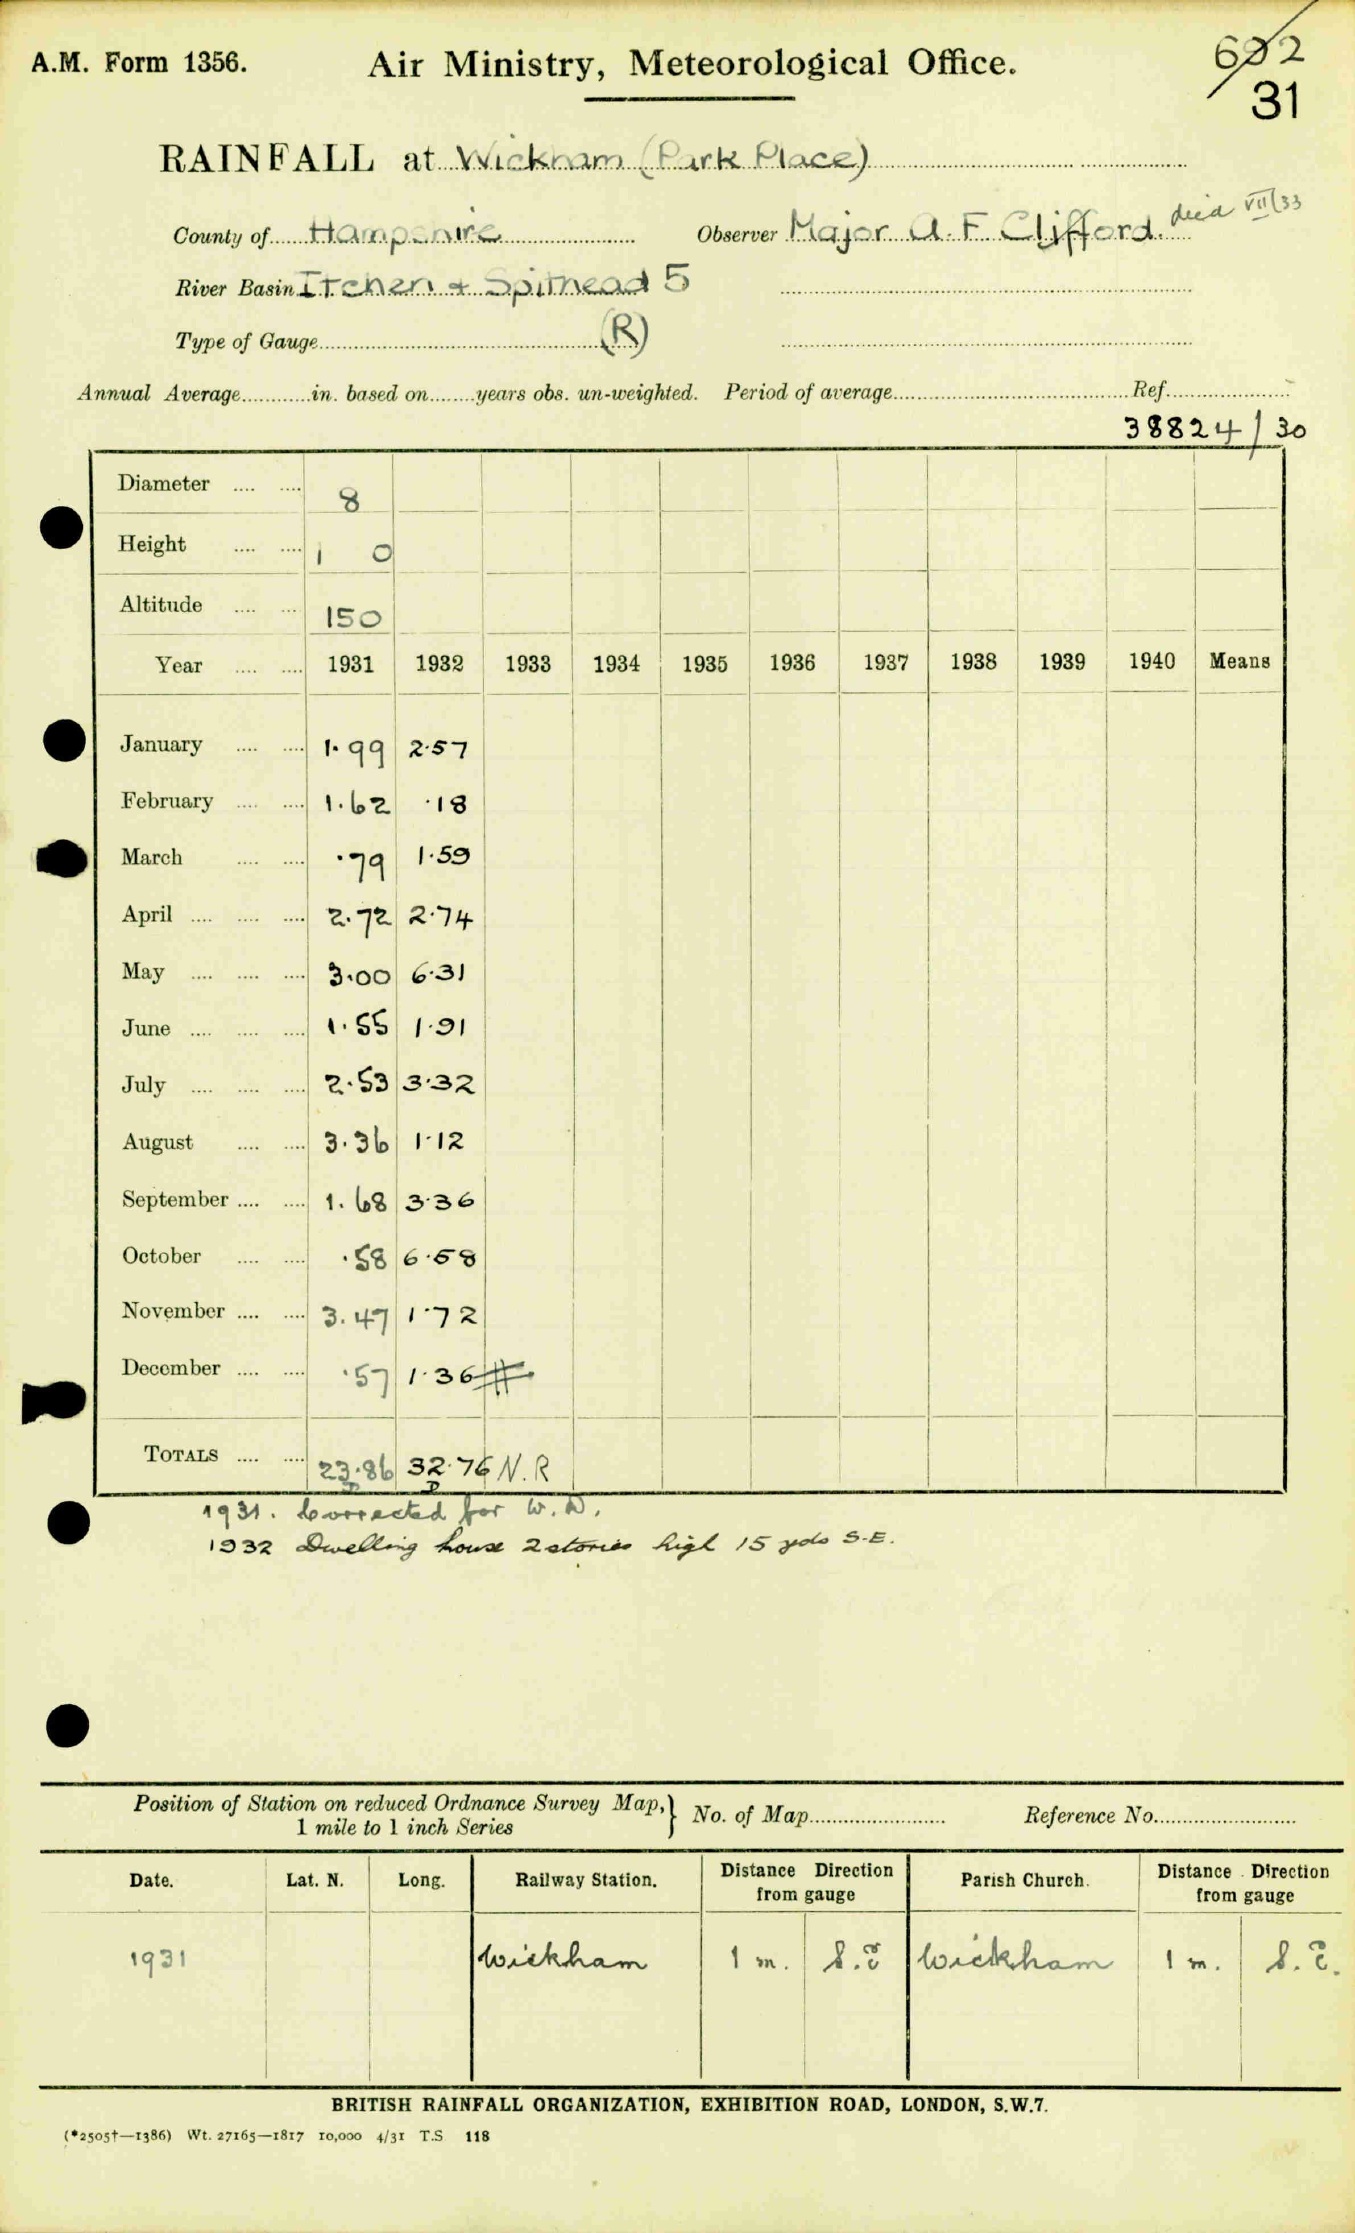 A.M. Form 1356.
Air Ministry, Meteorological Office.
692
31
RAINFALL at Wickham (Park Place)
County of Hampshire
Observer Major A. F. Clifford. died VII/33
River Basin Itchen + Spithead 5
Type of Gauge (R)
Annual Average in. based on years obs. un-weighted. Period of average Ref.
38824/30
Diameter 8
Height 1 0
Altitude 150
Year 1931 1932 1933 1934 1935 1936 1937 1938 1939 1940 Means
January 1.99 2.57
February 1.62 .18
March .79 1.59
April 2.72 2.74
May 3.00 6.31
June 1.55 1.91
July 2.53 3.32
August 3.36 1.12
September 1.68 3.36
October .58 6.58
November 3.47 1.72
December .57 1.36 #
TOTALS 23.86 32.76 N.R
D D
1931. Corrected for W.D.
1932 Dwelling house 2 stories high 15 yds S.E.
Position of Station on reduced Ordnance Survey Map, } No. of Map Reference No.
1 mile to 1 inch Series
Date. Lat. N. Long. Railway Station. Distance Direction from gauge Parish Church. Distance Direction from gauge
1931 Wickham 1 m. S.E Wickham 1 m. S.E.
BRITISH RAINFALL ORGANIZATION, EXHIBITION ROAD, LONDON, S.W.7.
(*2505†—1386) Wt. 27165—1817 10,000 4/31 T.S 118